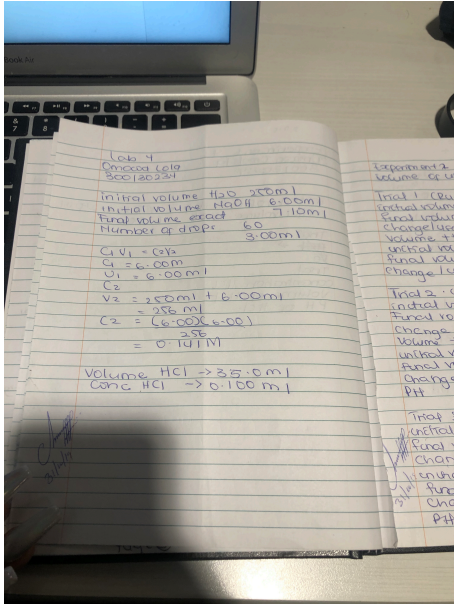 Lab 4
300130234
initial volume H2O 250ml
initial volume NaOH 6.00ml
Final volume exact 7.10ml
Number of drops 60
3.00ml
C1V1 = C2V2
C1 = 6.00m
V1 = 6.00ml
C2
V2 = 250ml + 6.00ml
= 256ml
C2 = (6.00)(6.00)
256
= 0.141M
Volume HCl -> 35.0ml
Conc HCl -> 0.100ml
Experiment 2
volume of
Trial 1
initial volume
final volume
change
volume
initial vol
final vol
change
Trial 2
initial vo
Final vo
Change
Volume
initial v
Final v
Change
PH
Trial
initial
final
Char
final
Cha
PH